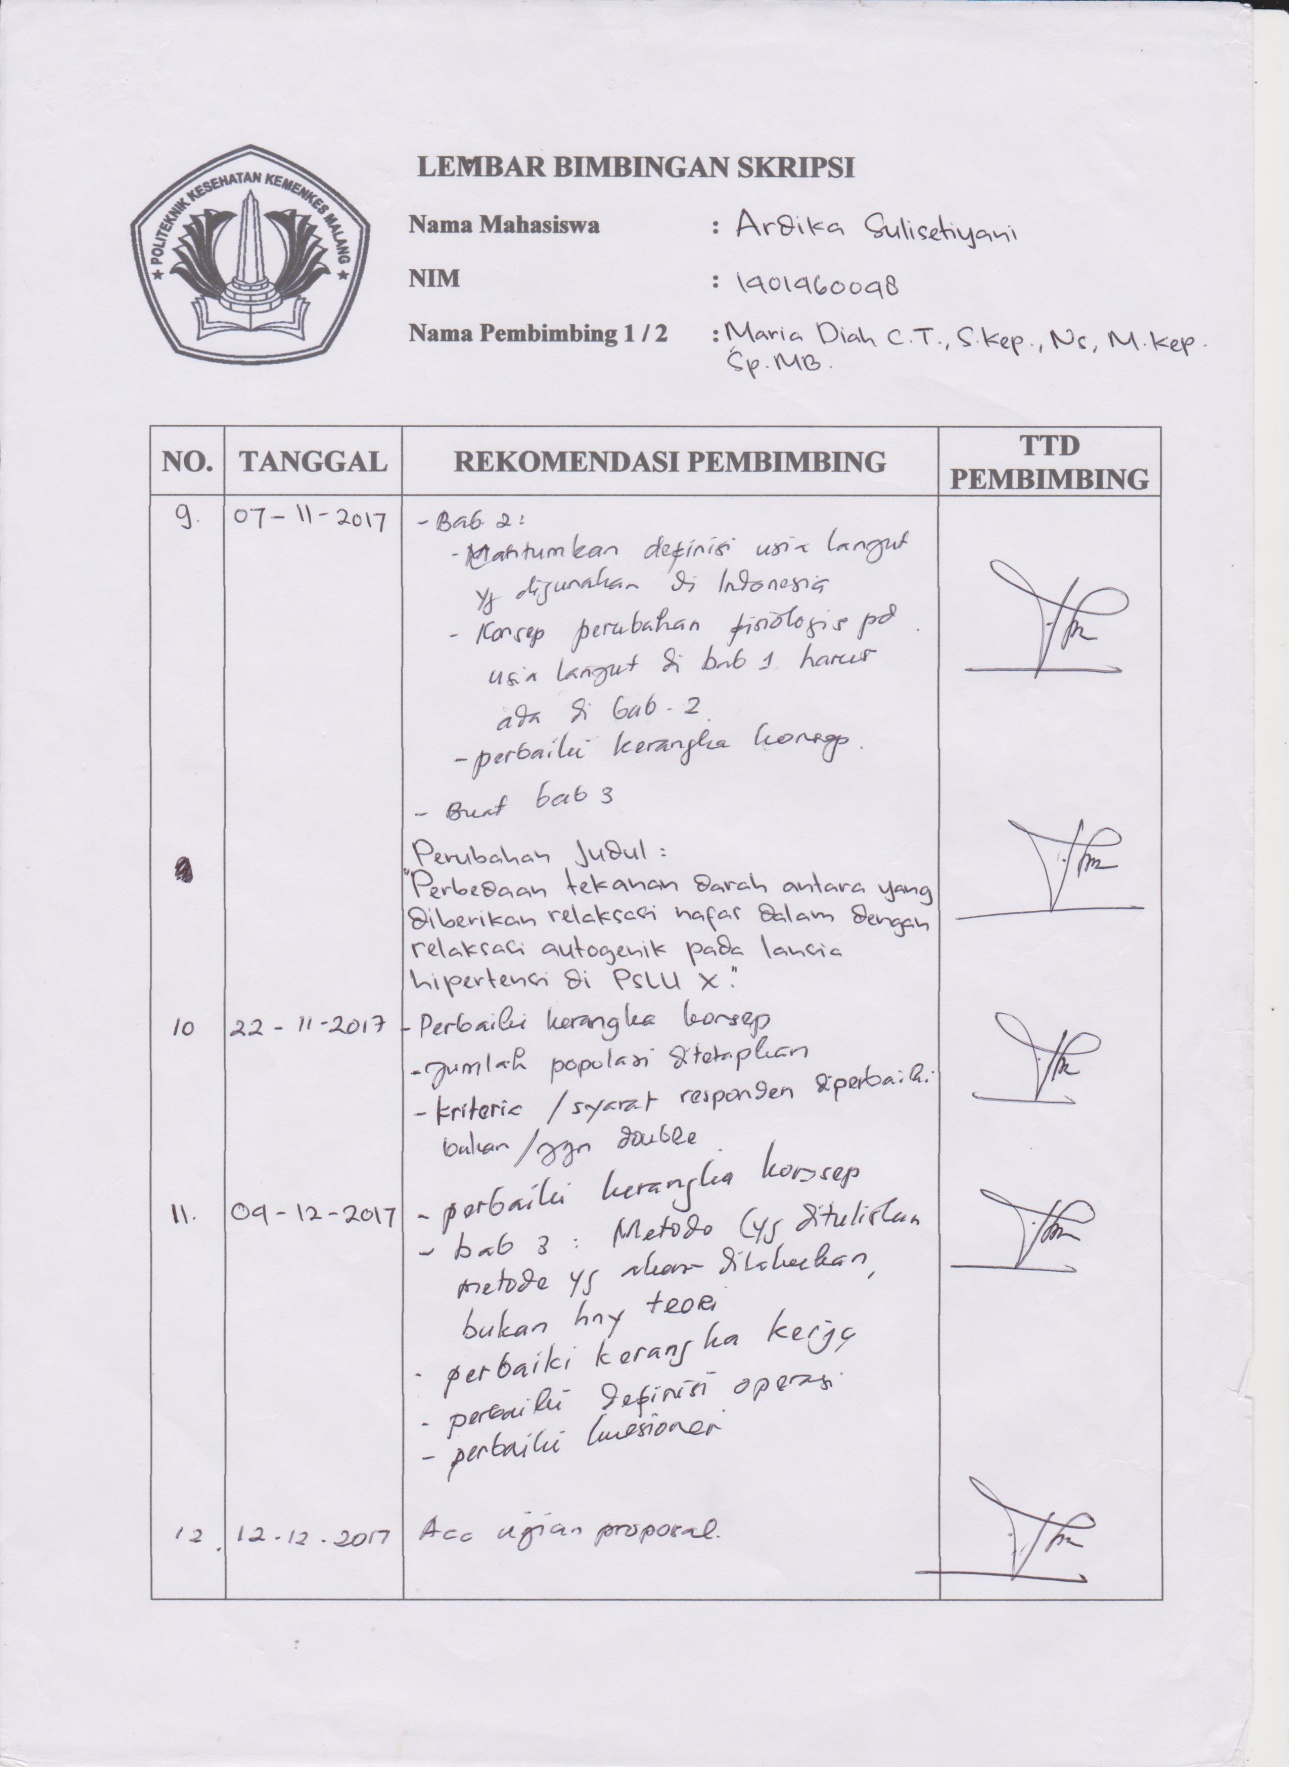 POLITEKNIK KESEHATAN KEMENKES MALANG
LEMBAR BIMBINGAN SKRIPSI
Nama Mahasiswa : Ardika Sulisetiyani
NIM : 1401460048
Nama Pembimbing 1 / 2 : Maria Diah C.T., S.Kep., Ns, M.Kep.
Sp.MB.
NO. TANGGAL REKOMENDASI PEMBIMBING TTD PEMBIMBING
9. 07-11-2017 - Bab 2:
- Cantumkan definisi usia lanjut
yg digunakan di Indonesia
- Konsep perubahan fisiologis pd
usia lanjut di bab 1 harus
ada di bab-2
- perbaiki kerangka konsep.
- Buat bab 3
Perubahan Judul :
"Perbedaan tekanan darah antara yang
diberikan relaksasi nafas dalam dengan
relaksasi autogenik pada lansia
hipertensi di PSLU X."
10 22-11-2017 - Perbaiki kerangka konsep
- Jumlah populasi ditetapkan
- kriteria / syarat responden diperbaiki
bukan / double
11. 09-12-2017 - perbaiki kerangka konsep
- bab 3 : Metode (yg dituliskan
metode yg akan dilakukan,
bukan hny teori
- perbaiki kerangka kerja
- perbaiki definisi operasi
- perbaiki kuesioner
12. 12-12-2017 Acc ujian proposal.